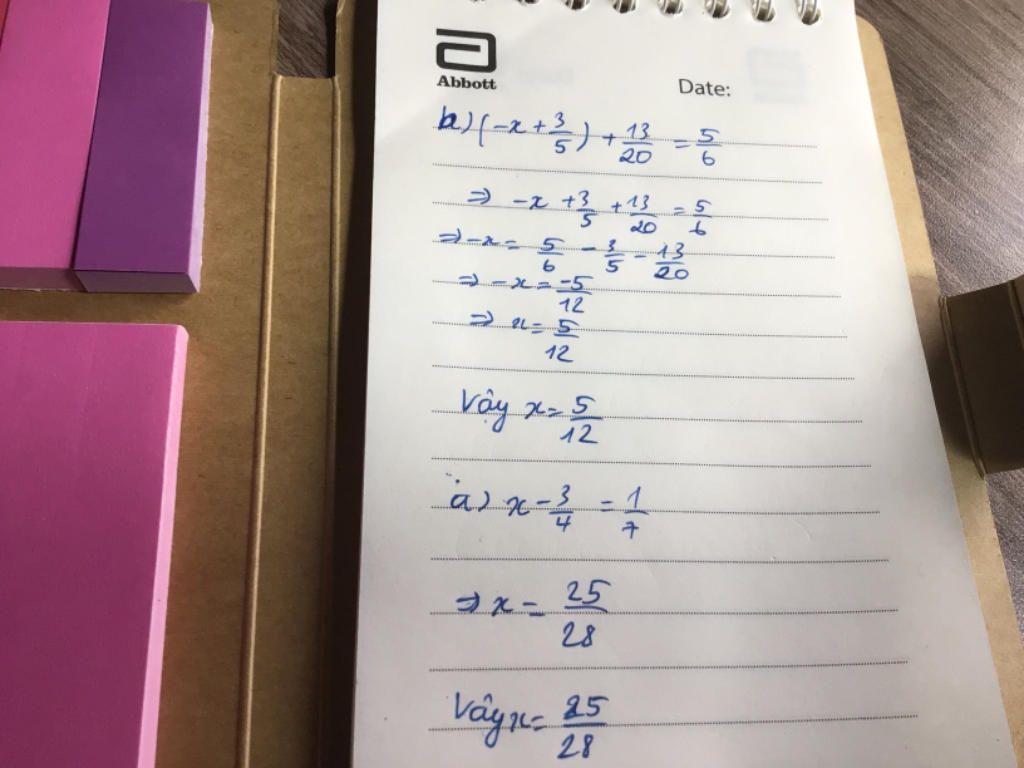 Abbott
Date:
b) (-x + 3/5) + 13/20 = 5/6
⇒ -x + 3/5 + 13/20 = 5/6
⇒ -x = 5/6 - 3/5 - 13/20
⇒ -x = -5/12
⇒ x = 5/12
Vậy x = 5/12
a) x - 3/4 = 1/7
⇒ x = 25/28
Vây x = 25/28